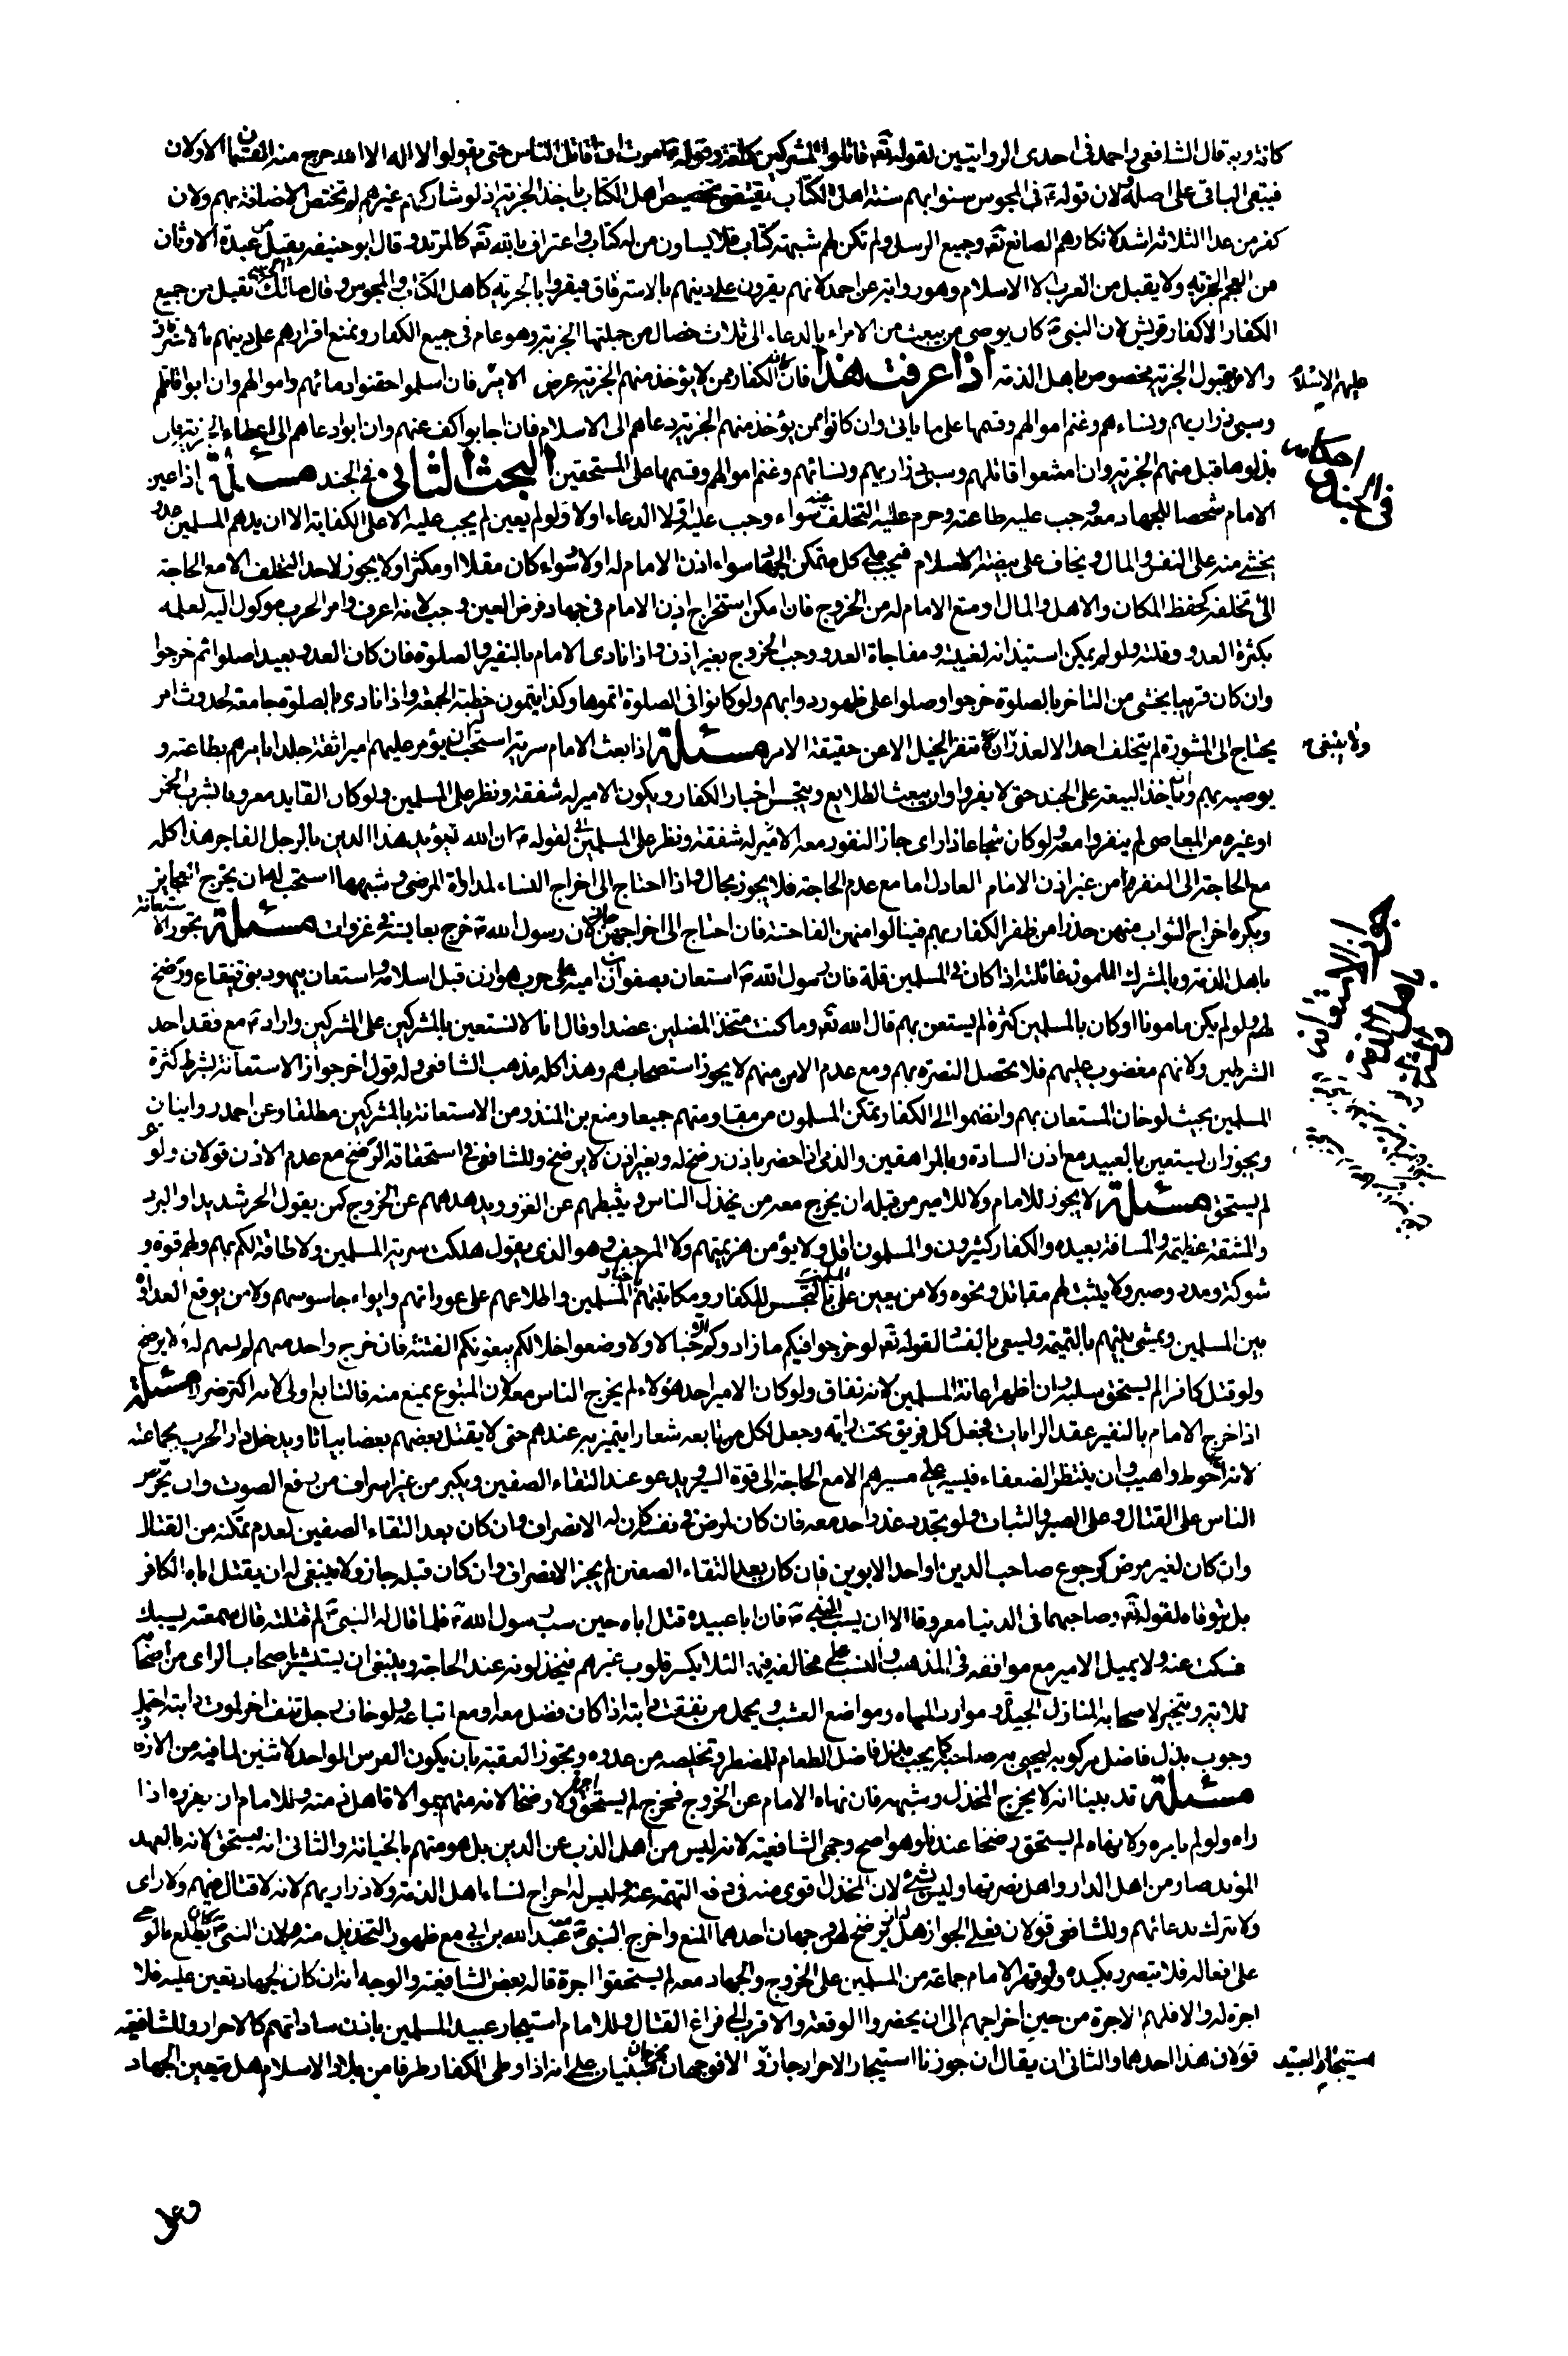 كافة وبه قال الشافعي واحمد في احدى الروايتين لقوله تع قاتلوا المشركين كافة وقوله ص امرت ان اقاتل الناس حتى يقولوا لا اله الا الله خرج منه القسمان الاولان
فيبقى الباقي على اصله ولان قوله ع في المجوس سنوا بهم سنة اهل الكتاب يقتضي تخصيص اهل الكتاب باخذ الجزية اذ لو شاركهم غيرهم لم تختص الاضافة بهم ولان
كفر من عدا الثلاثة اشد لانكارهم الصانع تع وجميع الرسل ولم تكن لهم شبهة كتاب فلا يساوون من له كتاب واعتراف بالله تع كالمرتد وقال ابو حنيفه يقبل من عبدة الاوثان
من العجم الجزية ولا يقبل من العرب الا الاسلام وهو رواية عن احمد لانهم يقرون على دينهم بالاسترقاق فيقروا بالجزية كاهل الكتاب والمجوس وقال مالك تقبل من جميع
الكفار الا كفار قريش لان النبي ص كان يوصي من يبعث من الامراء بالدعاء الى ثلاث خصال من جملتها الجزية وهو عام في جميع الكفار ونمنع اقرارهم على دينهم بالاسترقاق
والامر بقبول الجزية مخصوص باهل الذمة اذا عرفت هذا فان كان الكفار ممن لا يؤخذ منهم الجزية عرض الامير فان اسلموا حقنوا دمائهم واموالهم وان ابوا قاتلهم
عليهم الاسلام
وسبى ذراريهم ونساءهم وغنم اموالهم وقسمها على ما ياتي وان كانوا ممن يؤخذ منهم الجزية دعاهم الى الاسلام فان اجابوا كف عنهم وان ابوا دعاهم الى اعطاء الجزية فان
بذلوها قبل منهم الجزية وان امتنعوا قاتلهم وسبى ذراريهم ونسائهم وغنم اموالهم وقسمها على المستحقين البحث الثاني في الجند مسئلة اذا عين
احكام في الجند
الامام شخصا للجهاد معه وجب عليه طاعته وحرم عليه التخلف عنه سواء وجب عليه اولا الدعاء اولا ولو لم يعين لم يجب عليه الا على الكفاية الا ان يدهم المسلمين عدو
يخشى منه على النفس والمال ويخاف على بيضة الاسلام فيجب على كل متمكن الجهاد سواء اذن الامام له او لا وسواء كان مقلا او مكثرا ولا يجوز لاحد التخلف الا مع الحاجة
الى تخلفه كحفظ المكان والاهل والمال او منع الامام له من الخروج فان امكن استخراج اذن الامام في جهاد فرض العين وجب لانه اعرف وامر الحرب موكول اليه لعلمه
بكثرة العدو وقلته ولو لم يمكن استيذانه لغيبته ومفاجاة العدو وجب الخروج بغير اذن واذا نادى الامام بالنفير والصلوة فان كان العدو بعيدا صلوا ثم خرجوا
وان كان قريبا يخشى من التاخر بالصلوة خرجوا وصلوا على ظهور دوابهم ولو كانوا في الصلوة اتموها وكذا يتمون خطبة الجمعة واذا نادى بالصلوة جامعة لحدوث امر
يحتاج الى المشورة لم يتخلف احد الا لعذر ان تنفر الخيل الا عن حقيقة الامر مسئلة اذا بعث الامام سرية استحب ان يؤمر عليهم اميرا ثقة جلدا يامرهم بطاعته و
ولا ينبغي
يوصيه بهم وياخذ البيعة على الجند حتى لا يفروا وان يبعث الطلايع ويتجسس اخبار الكفار ويكون الامير له شفقة ونظر على المسلمين ولو كان القايد معروفا بشرب الخمر
او غيره من المعاصي لم ينفروا معه ولو كان شجاعا ذا راى جاز النفور معه الامير له شفقة ونظر على المسلمين لقوله ص ان الله ليؤيد هذا الدين بالرجل الفاجر هذا كله
مع الحاجة الى النفر من غير اذن الامام العادل اما مع عدم الحاجة فلا يجوز بحال واذا احتاج الى اخراج النساء لمداواة المرضى وشبهها استحب له ان يخرج العجايز
ويكره اخراج الشواب منهن حذرا من ظفر الكفار بهم فينالوا منهن الفاحشة فان احتاج الى اخراجهن جاز لان رسول الله ص خرج بعايشة في غزوات مسئلة يجوز الاستعانة
جواز الاستعانة باهل الذمة
باهل الذمة وبالمشرك المامون غائلته اذا كان في المسلمين قلة فان رسول الله ص استعان بصفوان بن امية على حرب هوازن قبل اسلامه واستعان بيهود بني قينقاع ورضخ
لهم ولو لم يكن مامونا او كان بالمسلمين كثرة لم يستعن بهم قال الله تع وما كنت متخذ المضلين عضدا وقال انا لا نستعين بالمشركين على المشركين واراد ع مع فقد احد
الشرطين ولانهم مغضوب عليهم فلا تحصل النصرة بهم ومع عدم الامن منهم لا يجوز استصحابهم وهذا كله مذهب الشافعي وله قول اخر جواز الاستعانة بشرط كثرة
المسلمين بحيث لو خان المستعان بهم وانضموا الى الكفار تمكن المسلمون من مقاومتهم جميعا ومنع بن المنذر من الاستعانة بالمشركين مطلقا وعن احمد روايتان
ويجوز ان يستعين بالعبيد مع اذن السادة وبالمراهقين والذمي اذا حضر باذن رضخ له وبغير اذن لا يرضخ وللشافعي في استحقاقه الرضخ مع عدم الاذن قولان ولو
لم يستحق مسئلة لا يجوز للامام ولا للامير من قبله ان يخرج معه من يخذل الناس ويثبطهم عن الغزو ويزهدهم عن الخروج كمن يقول الحر شديد او البرد
والمشقة عظيمة والمسافة بعيده والكفار كثيرون والمسلمون اقل ولا يؤمن هزيمتهم ولا المرجف وهو الذي يقول هلكت سرية المسلمين ولا طاقة لكم بهم ولهم قوة و
شوكة ومدد وصبر ولا يثبت لهم مقاتل ونحوه ولا من يعين على المسلمين بالتجسس للكفار ومكاتبتهم باخبار المسلمين واطلاعهم على عوراتهم وايواء جاسوسهم ولا من يوقع العداوة
بين المسلمين ويمشي بينهم بالنميمة ويسعى بالفساد لقوله تع لو خرجوا فيكم ما زادوكم الا خبالا ولاوضعوا خلالكم يبغونكم الفتنة فان خرج واحد منهم لم يسهم له ولا يرضخ
ولو قتل كافرا لم يستحق سلبه وان اظهر اعانة المسلمين لانه نفاق ولو كان الامير احد هؤلاء لم يخرج الناس معه لان المتبوع يمنع منه فالتابع اولى لانه اكثر ضررا مسئلة
اذا خرج الامام بالنفير عقد الرايات فجعل كل فريق تحت راية وجعل لكل من تابعه شعارا يتميز به عندهم حتى لا يقتل بعضهم بعضا بياتا ويدخل دار الحرب بجماعته
لانه احوط واهيب وان ينتظر الضعفاء فيسير على مسيرهم الا مع الحاجة الى قوة السير ويدعو عند التقاء الصفين ويكبر من غير اسراف من رفع الصوت وان يحرض
الناس على القتال وعلى الصبر والثبات ولو تجدد عذر احد معه فان كان لمرض في نفسه كان له الانصراف وان كان بعد التقاء الصفين لعدم تمكنه من القتال
وان كان لغير مرض كرجوع صاحب الدين او احد الابوين فان كان بعد التقاء الصفين لم يجز الانصراف وان كان قبله جاز ولا ينبغي له ان يقتل اباه الكافر
بل يتوقاه لقوله تع وصاحبهما في الدنيا معروفا الا ان يسب النبي ص فان ابا عبيده قتل اباه حين سب رسول الله ص فلما قال له النبي ص لم قتلته قال سمعته يسبك
فسكت عنه ولا يميل الامير مع موافقه في المذهب والنسب على مخالفه فيه لئلا يكسر قلوب غيرهم فيخذلونه عند الحاجة وينبغي ان يستشير اصحاب الراى من اصحابه
للاية ويتخير لاصحابه المنازل الجيدة وموارد المياه ومواضع العشب ويحمل من نفقت دابته اذا كان فضل معه او مع اتباعه ولو خاف رجل تلف اخر لموت دابته احتمل
وجوب بذل فاضل مركوبه ليحيى به صاحبه كما يجب بذل فاضل الطعام للمضطر وتخليصه من عدوه ويجوز العقبة بان يكون الفرس الواحد لاثنين لما فيه من الارفاق
مسئلة قد بينا انه لا يخرج المخذل وشبهه فان نهاه الامام عن الخروج فخرج لم يستحق اجرة ولا رضخا لانه متهم بموالاة اهل ذمته وللامام ان يعزره اذا
راه ولو لم يامره ولا نهاه لم يستحق رضخا عندنا وهو اصح وجهي الشافعية لانه ليس من اهل الذب عن الدين بل هو متهم بالخيانة والثاني انه يستحق لانه بالعهد
المؤبد صار من اهل الدار واهل نصرتها وليس بشئ لان المخذل اقوى منه في دفع التهمة عنه وليس له اخراج نساء اهل الذمة ولا ذراريهم لانه لا قتال فيهم ولا راى
ولا تبرك بدعائهم وللشافعي قولان فعلى الجواز هل يرضخ لهم وجهان احدهما المنع واخرج النبي ص معه عبد الله بن ابي مع ظهور التخذيل منه لان النبي ص كان يطلع بالوحي
على افعاله فلا يتضرر بكيده ولو قهر الامام جماعة من المسلمين على الخروج والجهاد معه لم يستحقوا اجرة قاله بعض الشافعية والوجه انه ان كان الجهاد تعين عليه فلا
اجرة له والا فلهم الاجرة من حين اخراجهم الى ان يحضروا الوقعة والاقرب الى فراغ القتال وللامام استيجار عبيد المسلمين باذن ساداتهم كالاحرار وللشافعية
قولان هذا احدهما والثاني ان يقال ان جوزنا استيجار الاحرار جاز والا فوجهان مخرجان مبنيان على انه اذا وطى الكفار طرفا من بلاد الاسلام هل يتعين الجهاد
استيجار العبيد
على